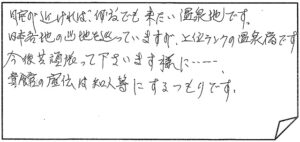 距離が近ければ、何宿でも来たい温泉地です。
日本各地の当地を巡っていますが、上位ランクの温泉宿です
今後共頑張って下さいます様に……。
貴館の宣伝は知人等にするつもりです。